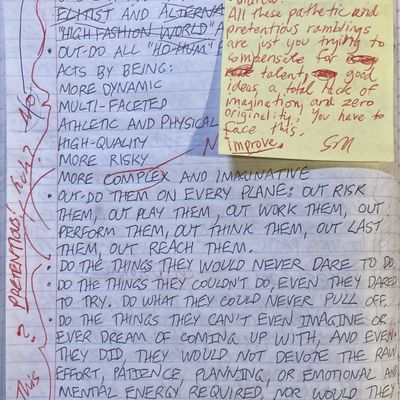 ELITIST AND ALTERNA
"HIGH FASHION WORLD" A
• OUT-DO ALL "HO-HUM"
ACTS BY BEING:
MORE DYNAMIC
MULTI-FACETED
ATHLETIC AND PHYSICAL
HIGH-QUALITY
MORE RISKY
MORE COMPLEX AND IMAGINATIVE
• OUT-DO THEM ON EVERY PLANE: OUT RISK
THEM, OUT PLAY THEM, OUT WORK THEM, OUT
PERFORM THEM, OUT THINK THEM, OUT LAST
THEM, OUT REACH THEM.
• DO THE THINGS THEY WOULD NEVER DARE TO DO.
• DO THE THINGS THEY COULDN'T DO, EVEN THEY DARED
TO TRY. DO WHAT THEY COULD NEVER PULL OFF.
• DO THE THINGS THEY CAN'T EVEN IMAGINE OR
EVER DREAM OF COMING UP WITH, AND EVEN
THEY DID, THEY WOULD NOT DEVOTE THE RAW
EFFORT, PATIENCE, PLANNING, OR EMOTIONAL AND
MENTAL ENERGY REQUIRED, NOR WOULD THEY
All these pathetic and
pretentious ramblings
are just you trying to
compensate for
talent, good
ideas, a total lack of
imagination, and zero
originality. You have to
face this.
Improve.
No.
PRETENTIOUS!
?
This